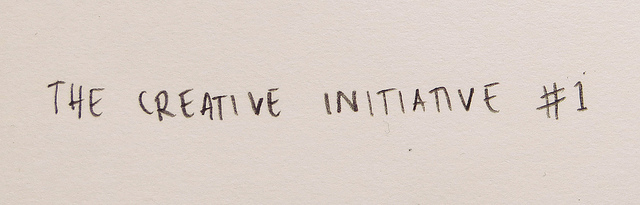 THE CREATIVE INITIATIVE #1